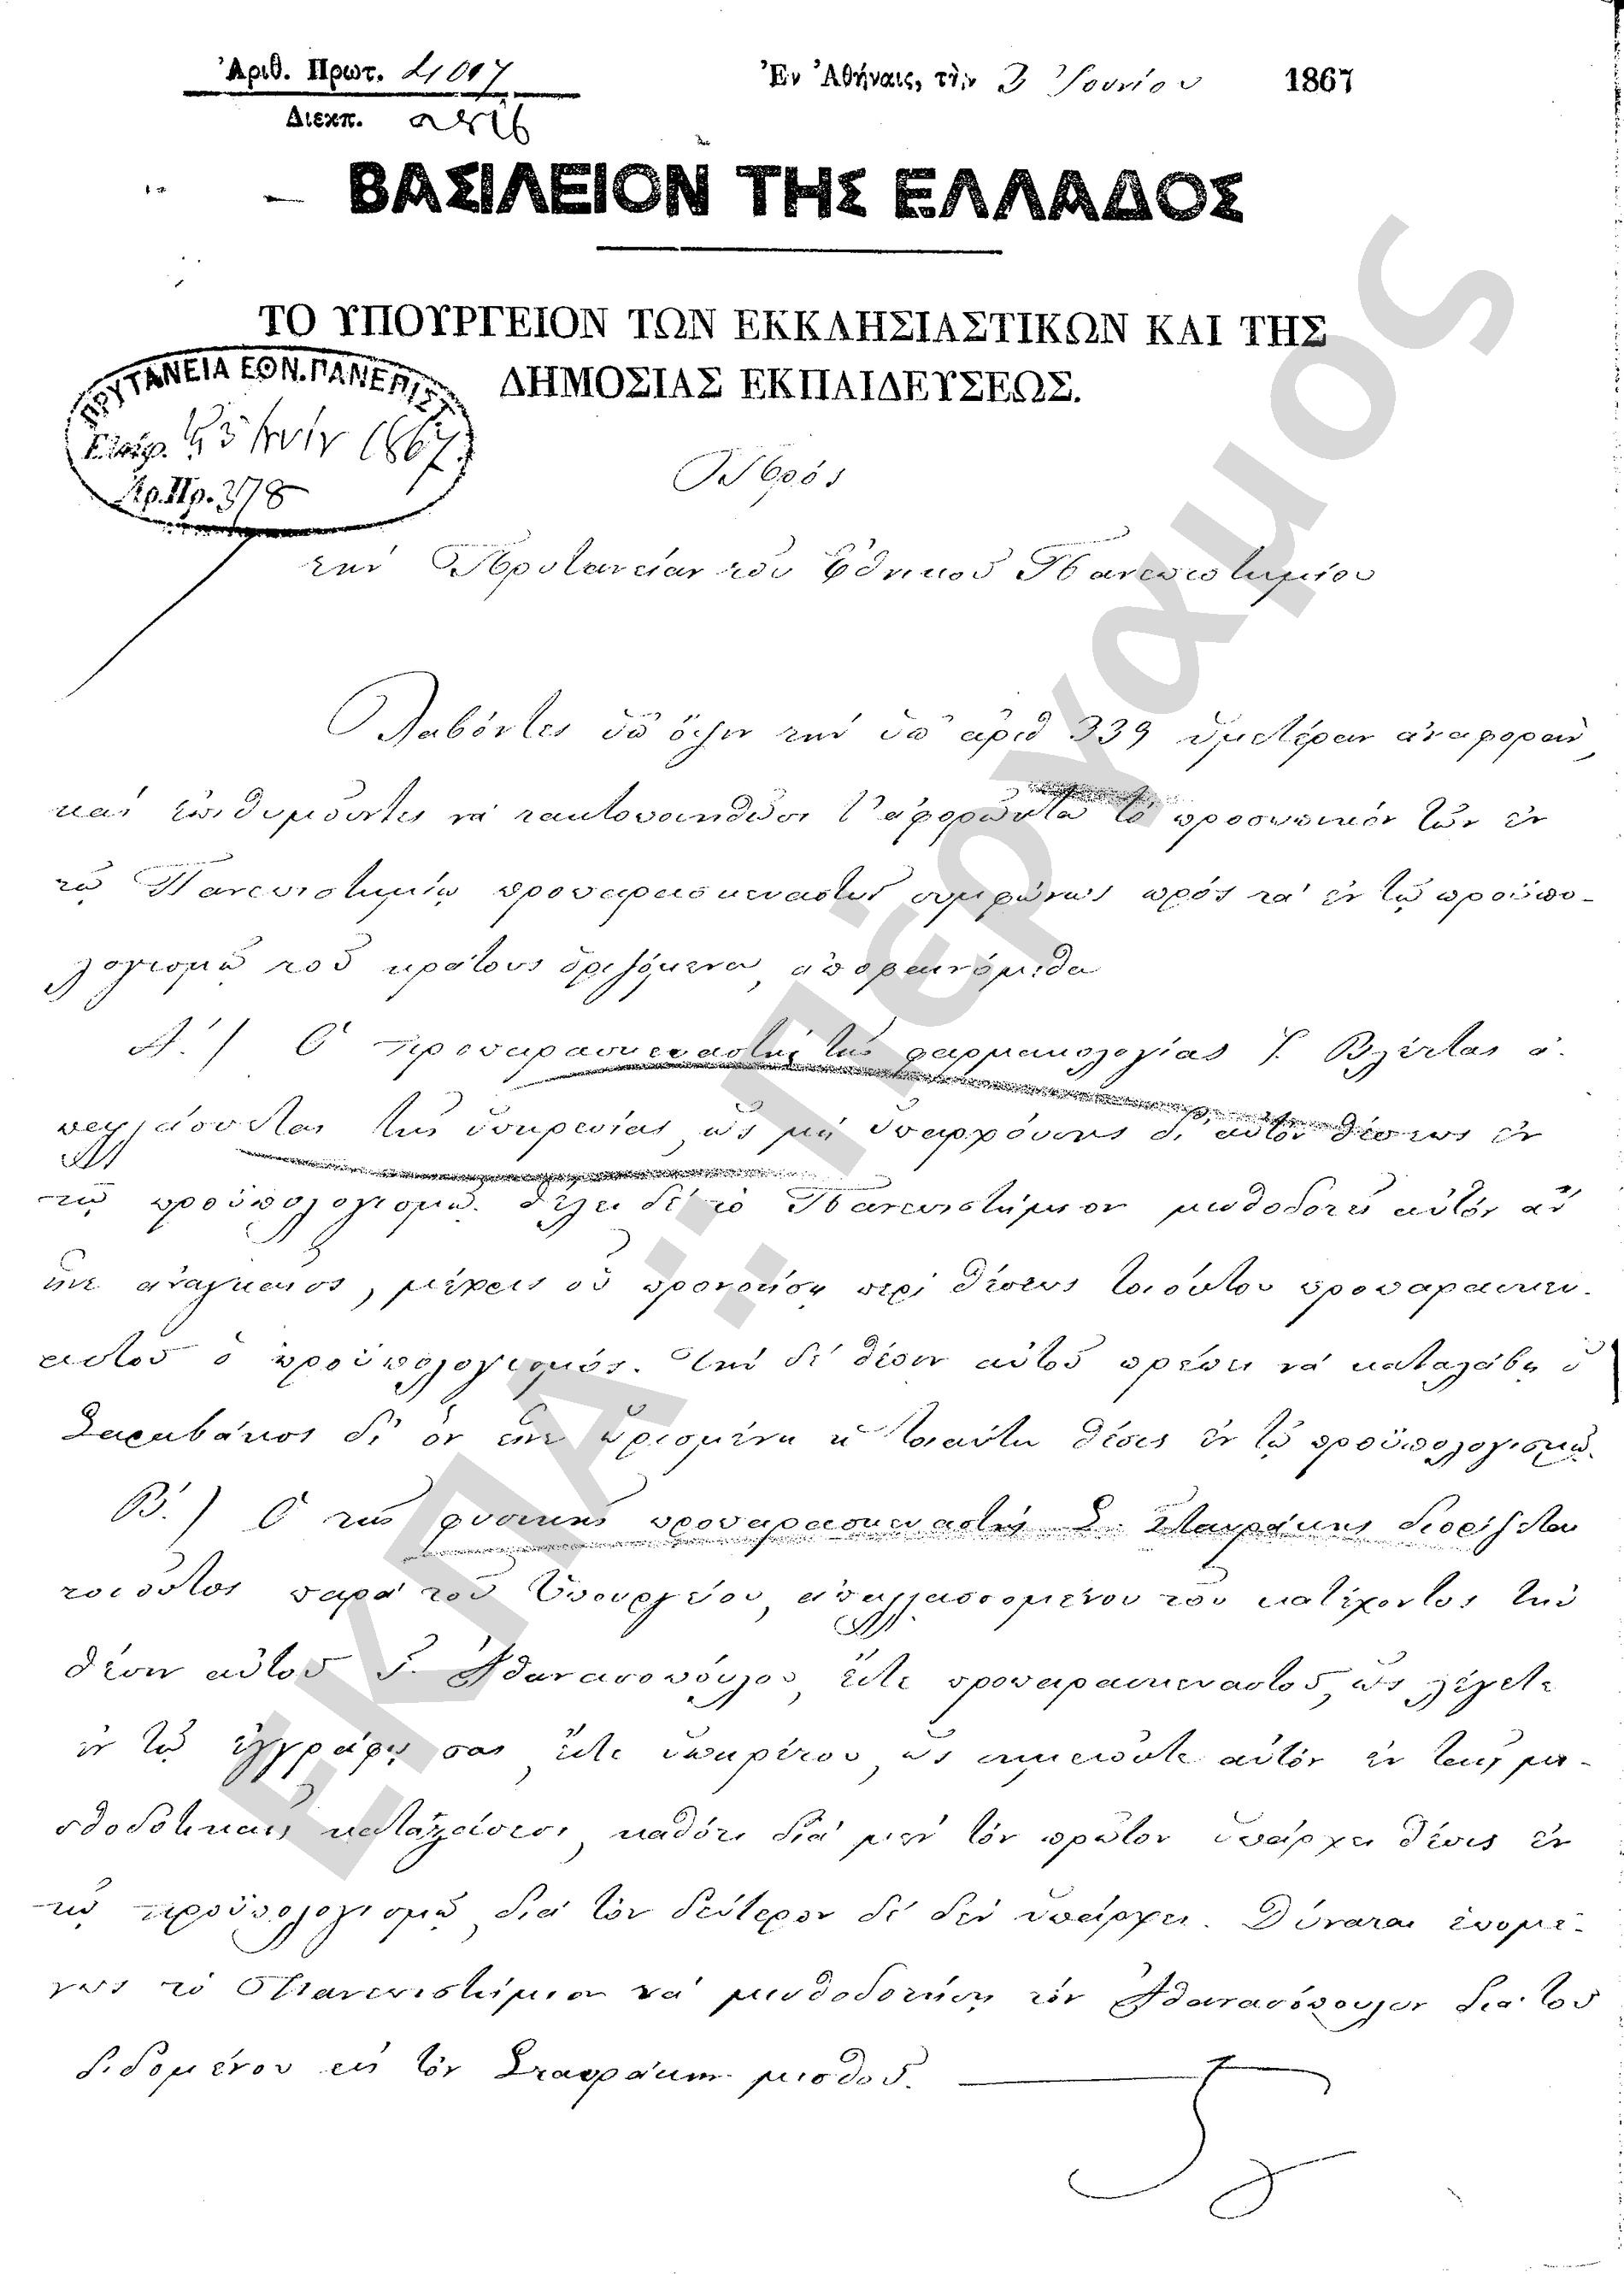 Ἀριθ. Πρωτ. 4097
Ἐν Ἀθήναις, τὴν 3 Ἰουνίου 1867
Διεκπ.
ΒΑΣΙΛΕΙΟΝ ΤΗΣ ΕΛΛΑΔΟΣ
ΤΟ ΥΠΟΥΡΓΕΙΟΝ ΤΩΝ ΕΚΚΛΗΣΙΑΣΤΙΚΩΝ ΚΑΙ ΤΗΣ
ΔΗΜΟΣΙΑΣ ΕΚΠΑΙΔΕΥΣΕΩΣ.
ΠΡΥΤΑΝΕΙΑ ΕΘΝ. ΠΑΝΕΠΙΣΤ.
1867
Ἀρ. Πρ. 378
Πρός
τήν Πρυτανείαν τοῦ Ἐθνικοῦ Πανεπιστημίου
Λαβόντες ὑπ' ὄψιν τήν ὑπ' ἀριθ 339 ὑμετέραν ἀναφοράν,
καί ἐπιθυμοῦντες νά τακτοποιηθῶσι τ' ἀφορῶντα τό προσωπικόν τῶν ἐν
τῷ Πανεπιστημίῳ προπαρασκευαστῶν συμφώνως πρός τά ἐν τῷ προϋπο-
λογισμῷ τοῦ κράτους ὁριζόμενα, ἀποφαινόμεθα
Α.) Ὁ προπαρασκευαστής τῆς φαρμακολογίας Γ. Βλέντας ἀ-
παλλάσσεται τῆς ὑπηρεσίας, ὡς μή ὑπαρχούσης δι' αὐτόν θέσεως ἐν
τῷ προϋπολογισμῷ. θέλει δέ τό Πανεπιστήμιον μισθοδοτεῖ αὐτόν ἄν
ἦναι ἀναγκαῖος, μέχρις οὗ προνοήσῃ περί θέσεως τοιούτου προπαρασκευ-
αστοῦ ὁ προϋπολογισμός. Τήν δέ θέσιν αὐτοῦ πρέπει νά καταλάβῃ ὁ
δι' ὅν εἶναι ὡρισμένη ἡ τοιαύτη θέσις ἐν τῷ προϋπολογισμῷ.
Β.) Ὁ τῆς φυσικῆς προπαρασκευαστής Σ. Σταυράκης διορίζεται
τοιοῦτος παρά τοῦ Ὑπουργείου, ἀπαλλασσομένου τοῦ κατέχοντος τήν
θέσιν αὐτοῦ Γ. Ἀθανασοπούλου, εἴτε προπαρασκευαστοῦ, ὡς λέγετε
ἐν τῷ ἐγγράφῳ σας, εἴτε ὑπηρέτου, ὡς σημειοῦτε αὐτόν ἐν ταῖς μι-
σθοδοτικαῖς καταστάσεσι, καθότι διά μέν τόν πρῶτον ὑπάρχει θέσις ἐν
τῷ προϋπολογισμῷ, διά τόν δεύτερον δέ δέν ὑπάρχει. Δύναται ἑπομέ-
νως τό Πανεπιστήμιον νά μισθοδοτήσῃ τόν Ἀθανασόπουλον διά τοῦ
διδομένου εἰς τόν Σταυράκην μισθοῦ.
ΕΚΠΑ :: Πέργαμος